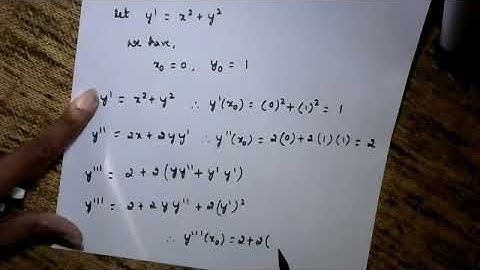 let y' = x² + y²
we have,
x₀ = 0, y₀ = 1
y' = x² + y² ∴ y'(x₀) = (0)² + (1)² = 1
y'' = 2x + 2yy' ∴ y''(x₀) = 2(0) + 2(1)(1) = 2
y''' = 2 + 2(yy'' + y'y')
y''' = 2 + 2yy'' + 2(y')²
∴ y'''(x₀) = 2 + 2(